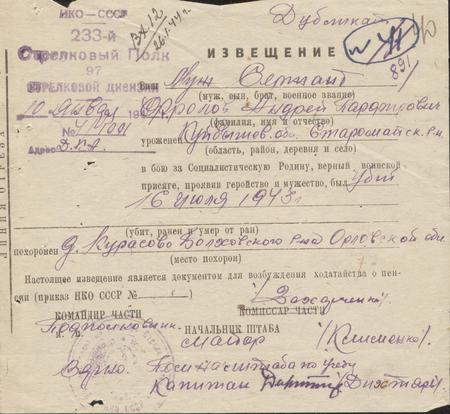 НКО—СССР
233-й
Стрелковый Полк
97
СТРЕЛКОВОЙ ДИВИЗИИ
Дубликат
Вх. 12
ИЗВЕЩЕНИЕ
891
Ваш Муж Сержант
(муж, сын, брат, военное звание)
Фролов Андрей
(фамилия, имя и отчество)
уроженец Куйбышев. обл. Старомайск. р-н
(область, район, деревня и село)
Адрес Д.К.А
в бою за Социалистическую Родину, верный воинской
присяге, проявив геройство и мужество, был убит
16 июля 1943 г.
(убит, ранен и умер от ран)
похоронен д. Курасово Болховского р-на Орловской обл.
(место похорон)
Настоящее извещение является документом для возбуждения ходатайства о пен-
сии (приказ НКО СССР №
КОМАНДИР ЧАСТИ КОМИССАР ЧАСТИ
Подполковник /Захарченко/
М. П.
НАЧАЛЬНИК ШТАБА
майор /Клименко/
Верно: Пом нач штаба по учету
капитан
ЛИНИЯ ОТРЕЗА